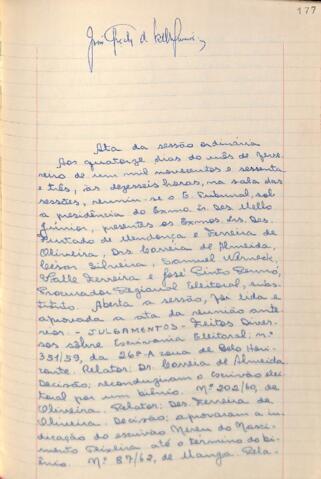 177
Ata da sessão ordinária
Aos quatorze dias do mês de feve-
reiro de um mil novecentos e sessenta
e três, às dezesseis horas, na sala das
sessões, reuniu-se o E. Tribunal, sob
a presidência do Exmo Sr. Des. Mello
Júnior, presentes os Exmos. Srs. Des.
Furtado de Mendonça e Ferreira de
Oliveira, Drs. Correia de Almeida,
Cesar Silveira, Samuel Werneck,
Valle Ferreira e José Pinto Renó,
Procurador Regional Eleitoral, subs-
tituto. Aberta a sessão, foi lida e
aprovada a ata da reunião ante-
rior. - JULGAMENTOS - Feitos Diver-
sos sôbre Escrivania Eleitoral: nº
351/59, da 26ª zona de Belo Hori-
zonte. Relator: Dr. Correia de Almeida
Decisão; reconduziram o escrivão elei-
toral por um biênio. Nº 202/60, de
Oliveira. Relator: Des. Ferreira de
Oliveira. Decisão: aprovaram a in-
dicação do escrivão Nereu do Nasci-
mento Teixeira até o término do bi-
ênio. Nº 87/62, de Manga. Rela-